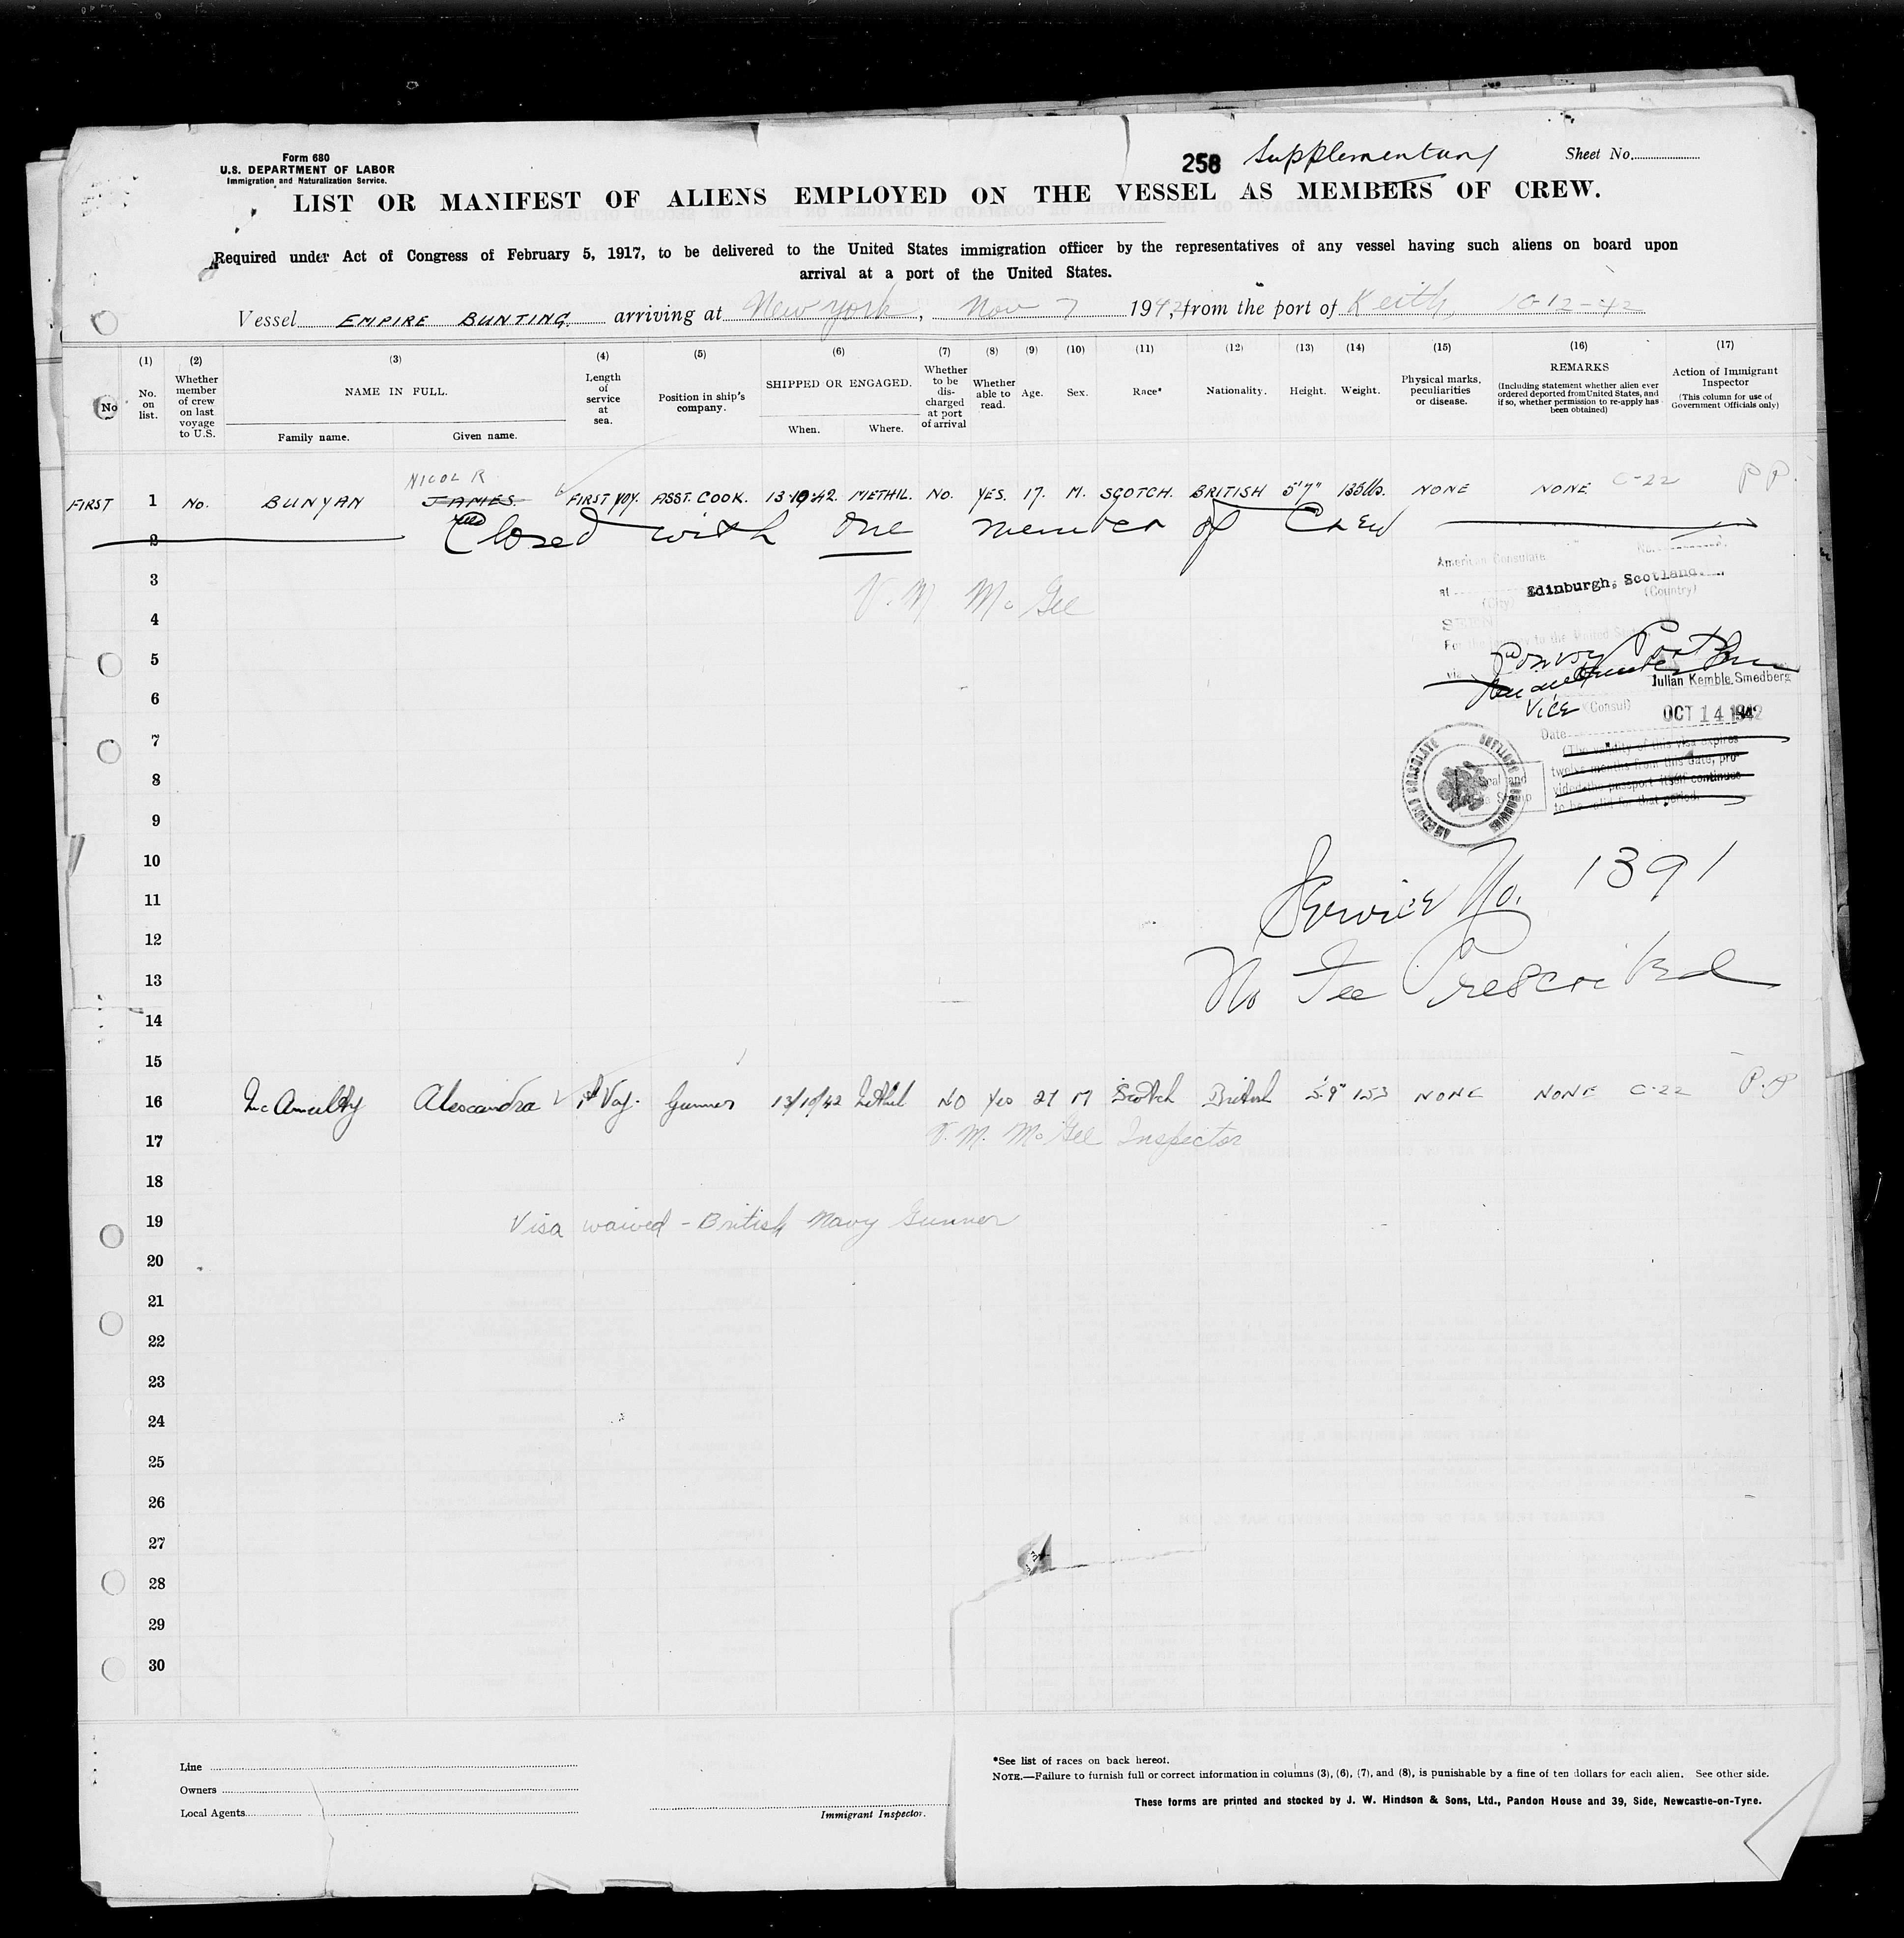 Form 680
U.S. DEPARTMENT OF LABOR
Immigration and Naturalization Service.
258 Supplementary Sheet No.
LIST OR MANIFEST OF ALIENS EMPLOYED ON THE VESSEL AS MEMBERS OF CREW.
Required under Act of Congress of February 5, 1917, to be delivered to the United States immigration officer by the representatives of any vessel having such aliens on board upon
arrival at a port of the United States.
Vessel EMPIRE BUNTING. arriving at New York, Nov 7 1942, from the port of 10-12-42
(1) (2) (3) (4) (5) (6) (7) (8) (9) (10) (11) (12) (13) (14) (15) (16) (17)
No
No. on list.
Whether member of crew on last voyage to U.S.
NAME IN FULL.
Family name. Given name.
Length of service at sea.
Position in ship's company.
SHIPPED OR ENGAGED.
When. Where.
Whether to be discharged at port of arrival
Whether able to read.
Age.
Sex.
Race*
Nationality.
Height.
Weight.
Physical marks, peculiarities or disease.
REMARKS
(Including statement whether alien ever ordered deported from United States, and if so, whether permission to re-apply has been obtained)
Action of Immigrant Inspector
(This column for use of Government Officials only)
NICOL R
FIRST 1 No. BUNYAN JAMES. FIRST VOY. ASST. COOK. 13·10·42. METHIL. NO. YES. 17. M. SCOTCH. BRITISH 5'7" 135lbs. NONE NONE C-22 PP.
2 Closed with one member of Crew
3
American Consulate No.
at Edinburgh, Scotland
(City) (Country)
V. M McGee
4
SEEN
For the journey to the United States
5
via
Julian Kemble Smedberg
6
Vice (Consul)
OCT 14 1942
7
Date
(The validity of this visa expires
twelve months from this date, pro-
vided the passport itself continues
to be valid for that period.
AMERICAN CONSULATE
Seal and
8
9
10
Service No. 1391
11
12
No Fee Prescribed
13
14
15
16 Alexandra 1st Voy. Gunner 13/10/42 Methil NO Yes 21 M Scotch British 5.9" 153 NONE NONE C-22 P.P
17 V. M. McGee Inspector
18
19 Visa waived - British Navy Gunner
20
21
22
23
24
25
26
27
28
29
30
Line
Owners
Local Agents
Immigrant Inspector.
*See list of races on back hereof.
NOTE.—Failure to furnish full or correct information in columns (3), (6), (7), and (8), is punishable by a fine of ten dollars for each alien. See other side.
These forms are printed and stocked by J. W. Hindson & Sons, Ltd., Pandon House and 39, Side, Newcastle-on-Tyne.